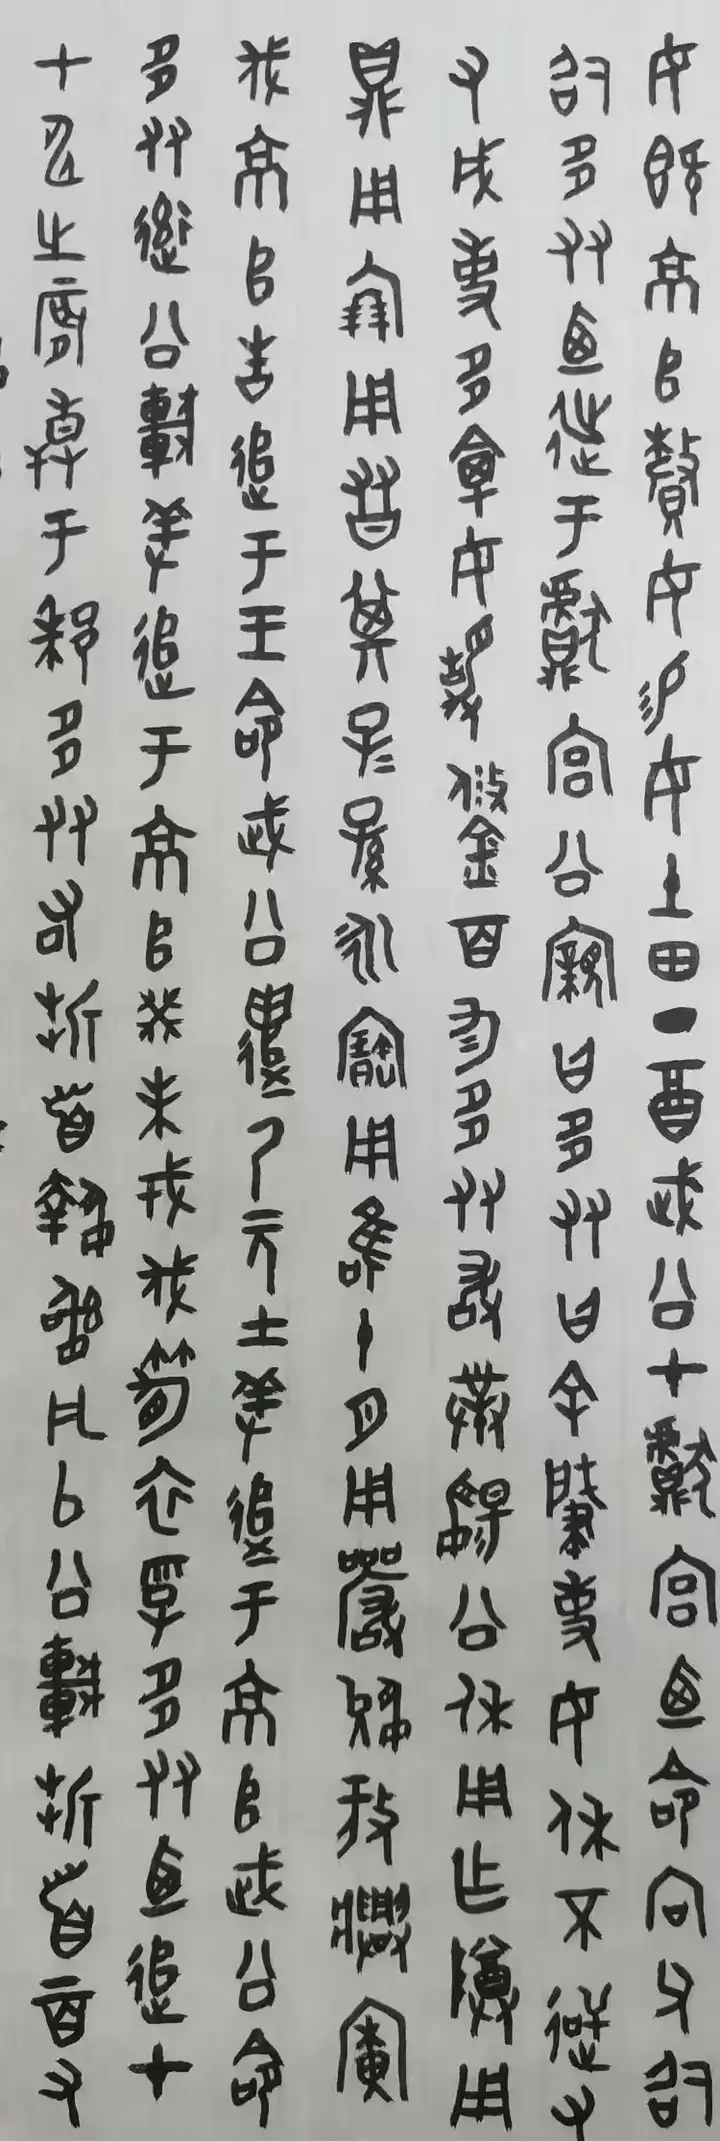 女既京𠂤釐女易女土田丁酉武公才獻宮廼命向父召
召多友廼徙于獻宮公親曰多友曰余肇事女休不逆又
又成事多禽女鋚百匀多友敢對揚公休用乍尊用
鼎用朋用友其子子孫孫永寶用隹十月用嚴允放興廣
伐京𠂤告追于王命武公遣乃元士羞追于京𠂤武公命
多友率公車羞追于京𠂤癸未戎伐筍衣孚多友廼追甲
甲申之晨搏于郗多友右折首執訊凡以公車折首二百又